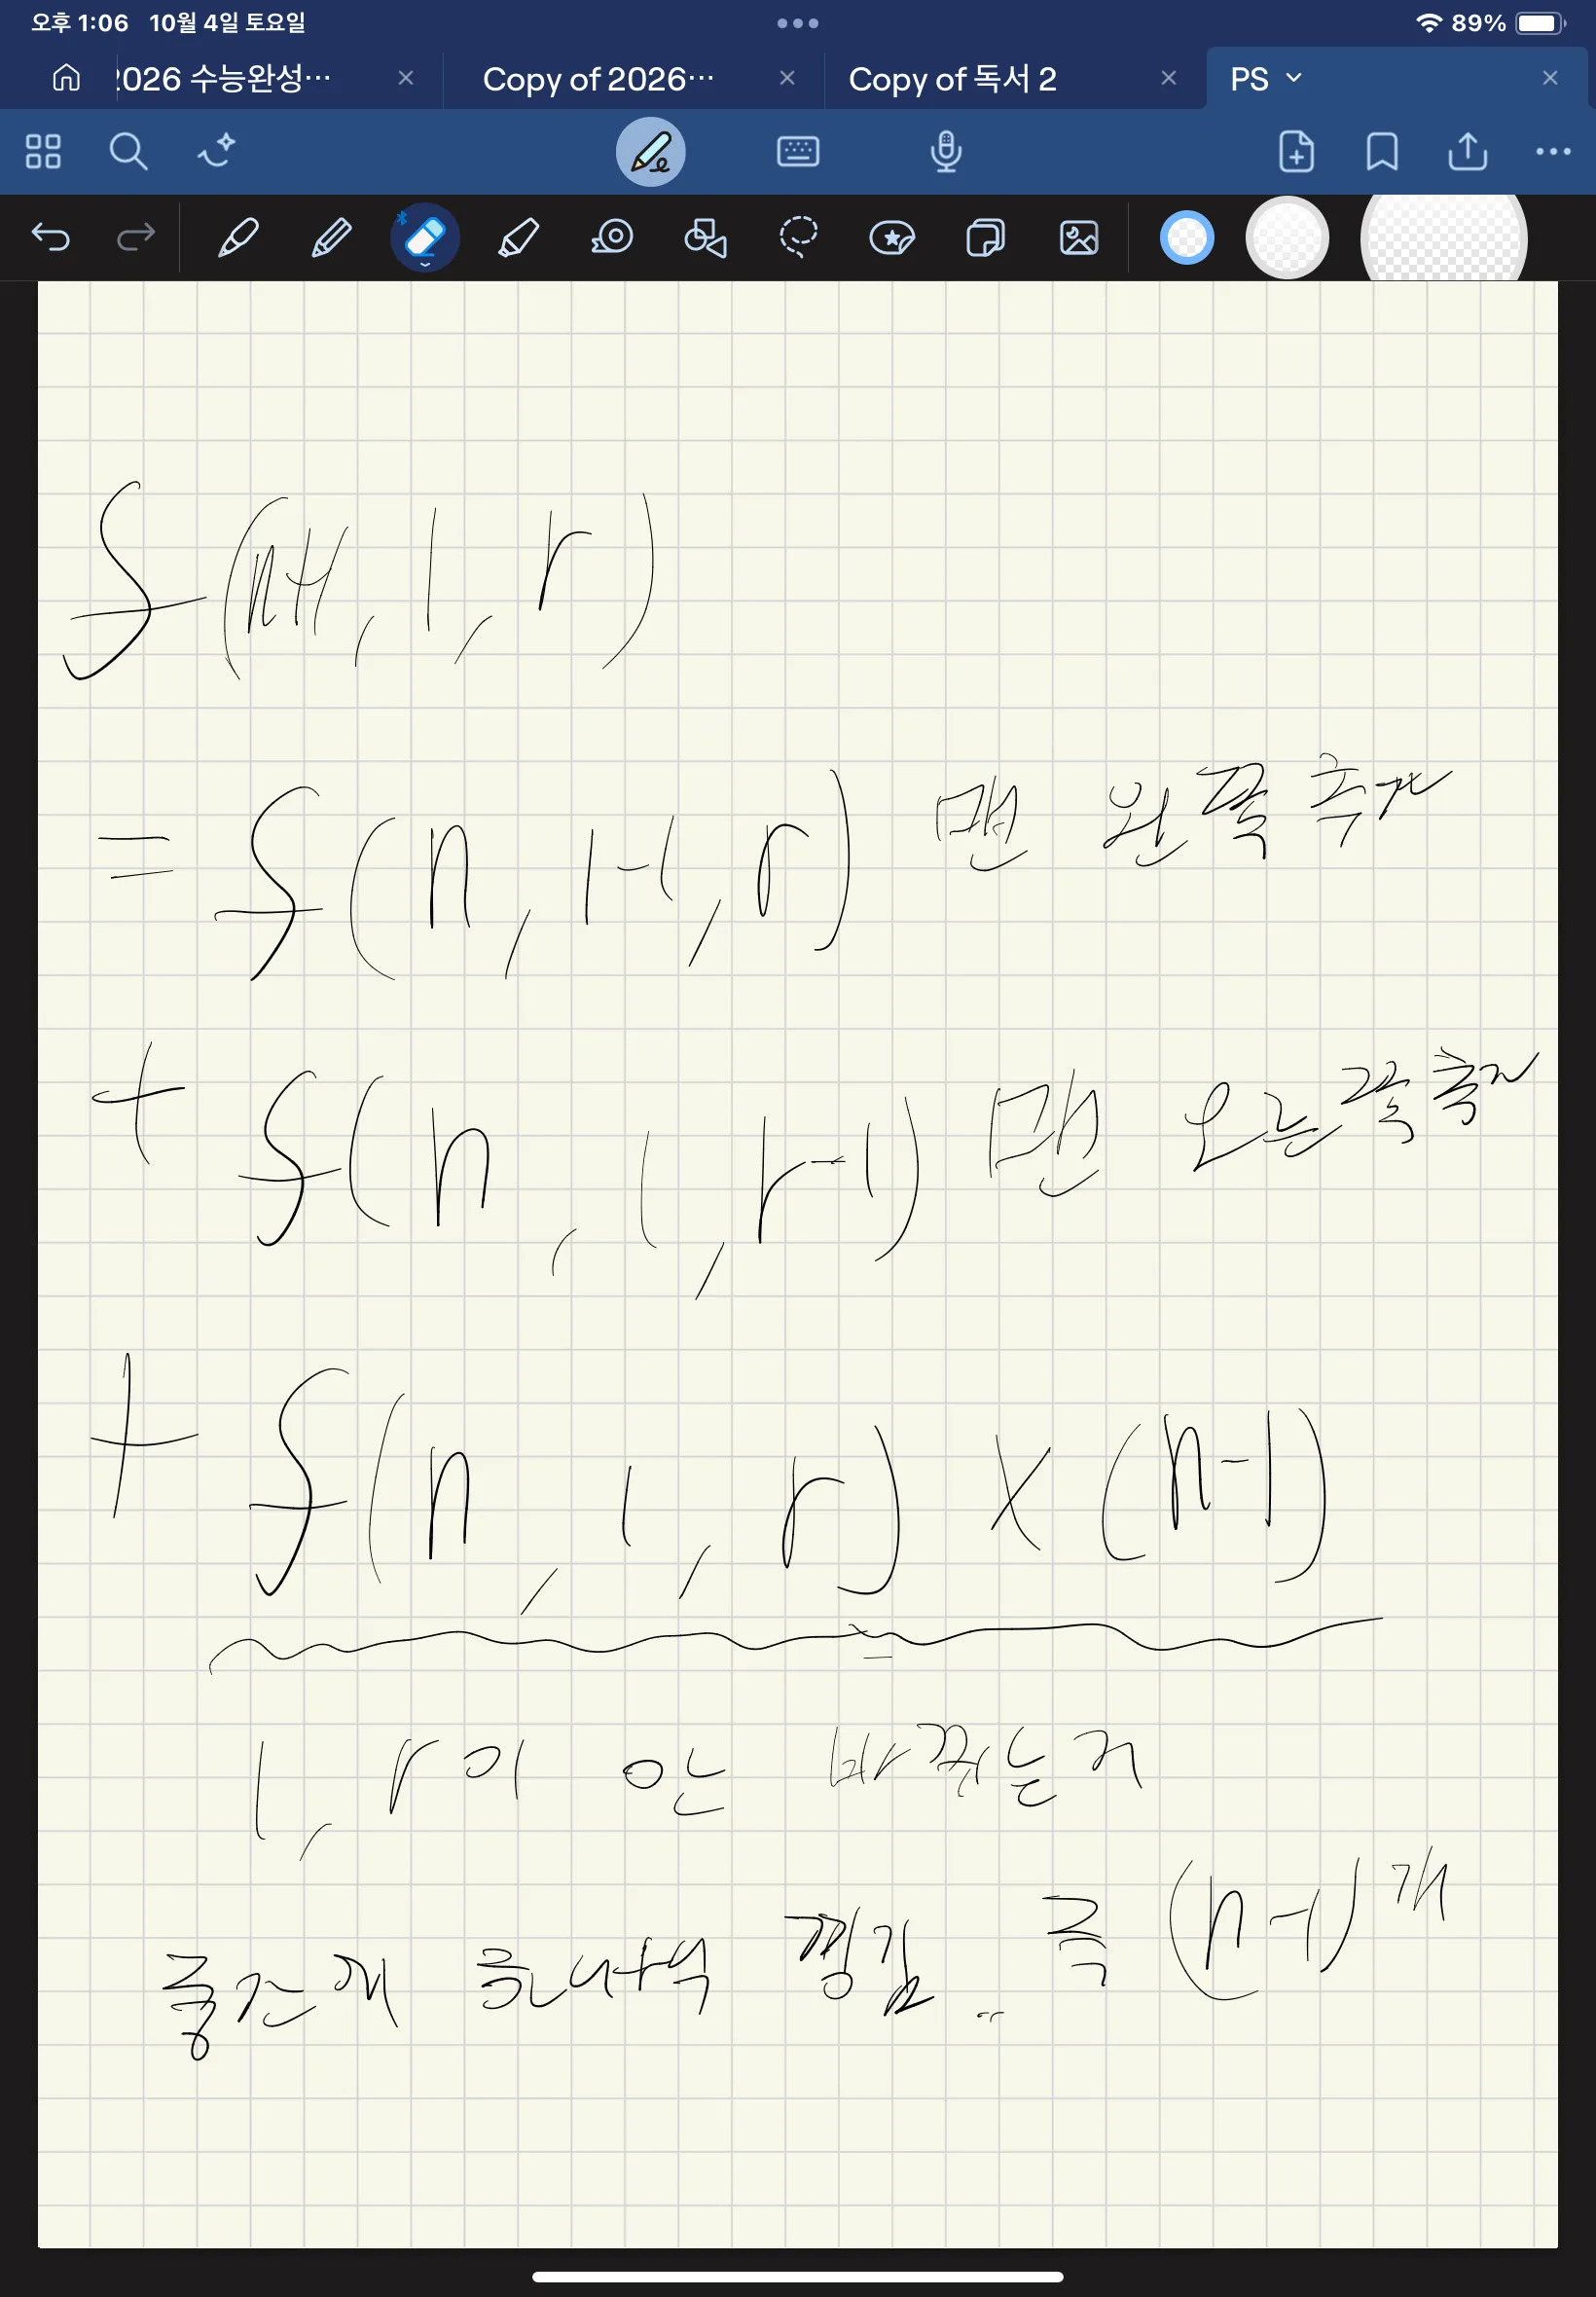 오후 1:06 10월 4일 토요일 89%
2026 수능완성… Copy of 2026… Copy of 독서 2 PS
f(n+1, l, r)
= f(n, l-1, r) 맨 왼쪽 추가
+ f(n, l, r-1) 맨 오른쪽 추가
+ f(n, l, r) × (n-1)
l, r이 안 바뀌는거
중간에 하나씩 낑김.. 즉 (n-1)개